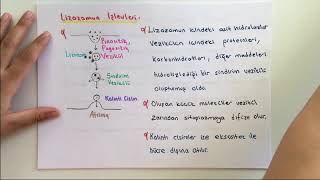 Lizozomun İşlevleri:
Pinositoz,
Fagositoz
Vezikül
Lizozom
Sindirim
Vezikülü
Kalıntı Cisim
Atılma
Lizozomun içindeki asit hidrolazlar
vezikülün içindeki proteinleri,
karbonhidratları, diğer maddeleri
hidrolizlediği bir sindirim vezikülü
oluşturmuş olur.
Oluşan küçük moleküller vezikül
zarından sitoplazmaya difüze olur.
Kalıntı cisimler ise ekzositoz ile
hücre dışına atılır.